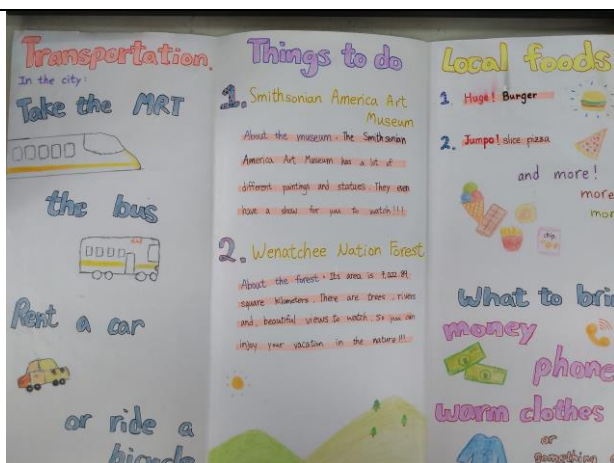 Transportation.
In the city:
Take the MRT
the bus
Rent a car
or ride a
bicycle
Things to do
1. Smithsonian America Art
Museum
About the museum. The Smithsonian
America Art Museum has a lot of
different paintings and statues. They even
have a show for you to watch!!!
2. Wenatchee Nation Forest
About the forest. Its area is 7,022.89
square kilometers. There are trees, rivers
and beautiful views to watch. So you can
enjoy your vacation in the nature!!!
Local foods
1. Huge! Burger
2. Jumpo! slice pizza
and more!
more
mor
What to bri
money
phone
warm clothes
or
something